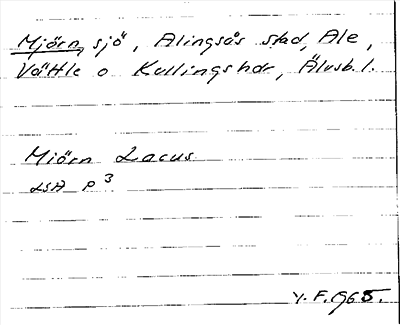 Mjörn, sjö, Alingsås stad, Ale,
Vättle o Kullings hdr, Älvsb. l.
Miörn Lacus
LSA P 3
Y. F. 1965.